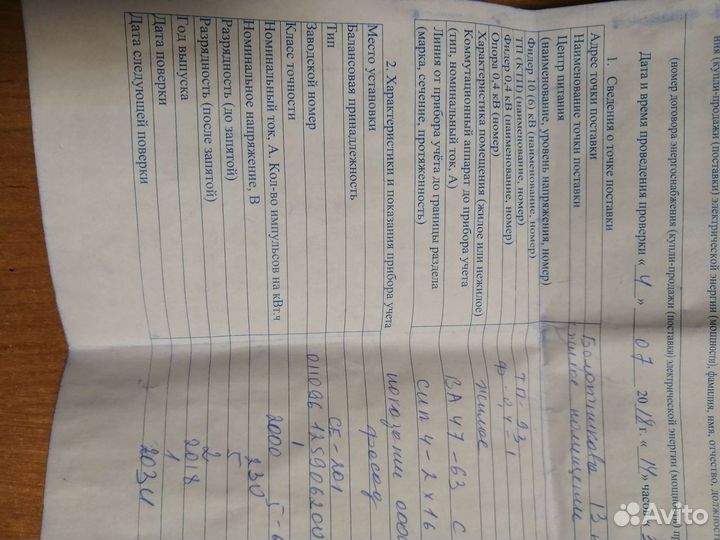 ния (купли-продажи (поставки) электрической энергии (мощности), фамилия, имя, отчество, должность
(номер договора энергоснабжения (купли-продажи (поставки) электрической энергии (мощности)
Дата и время проведения проверки « 4 » 07 2018 г. « 14 » часов
1. Сведения о точке поставки
Адрес точки поставки Болотникова 13
Наименование точки поставки жилое помещение
Центр питания
(наименование, уровень напряжения, номер)
Фидер 10 (6) кВ (наименование, номер)
ТП (КТП) (наименование, номер) ТП-93
Фидер 0,4 кВ (наименование, номер) Ф-0,4-1
Опора 0,4 кВ (номер)
Характеристика помещения (жилое или нежилое) Жилое
Коммутационный аппарат до прибора учета ВА 47-63 С
(тип, номинальный ток, А)
Линия от прибора учёта до границы раздела сип 4-2х16
(марка, сечение, протяженность)
2. Характеристики и показания прибора учета
Место установки фасад
Балансовая принадлежность
Тип СЕ-201
Заводской номер 011096 125906200
Класс точности 1
Номинальный ток, А. Кол-во импульсов на кВт.ч 2000 5-6
Номинальное напряжение, В 230
Разрядность (до запятой) 5
Разрядность (после запятой) 2
Год выпуска 2018
Дата поверки 1
Дата следующей поверки 2034
Avito